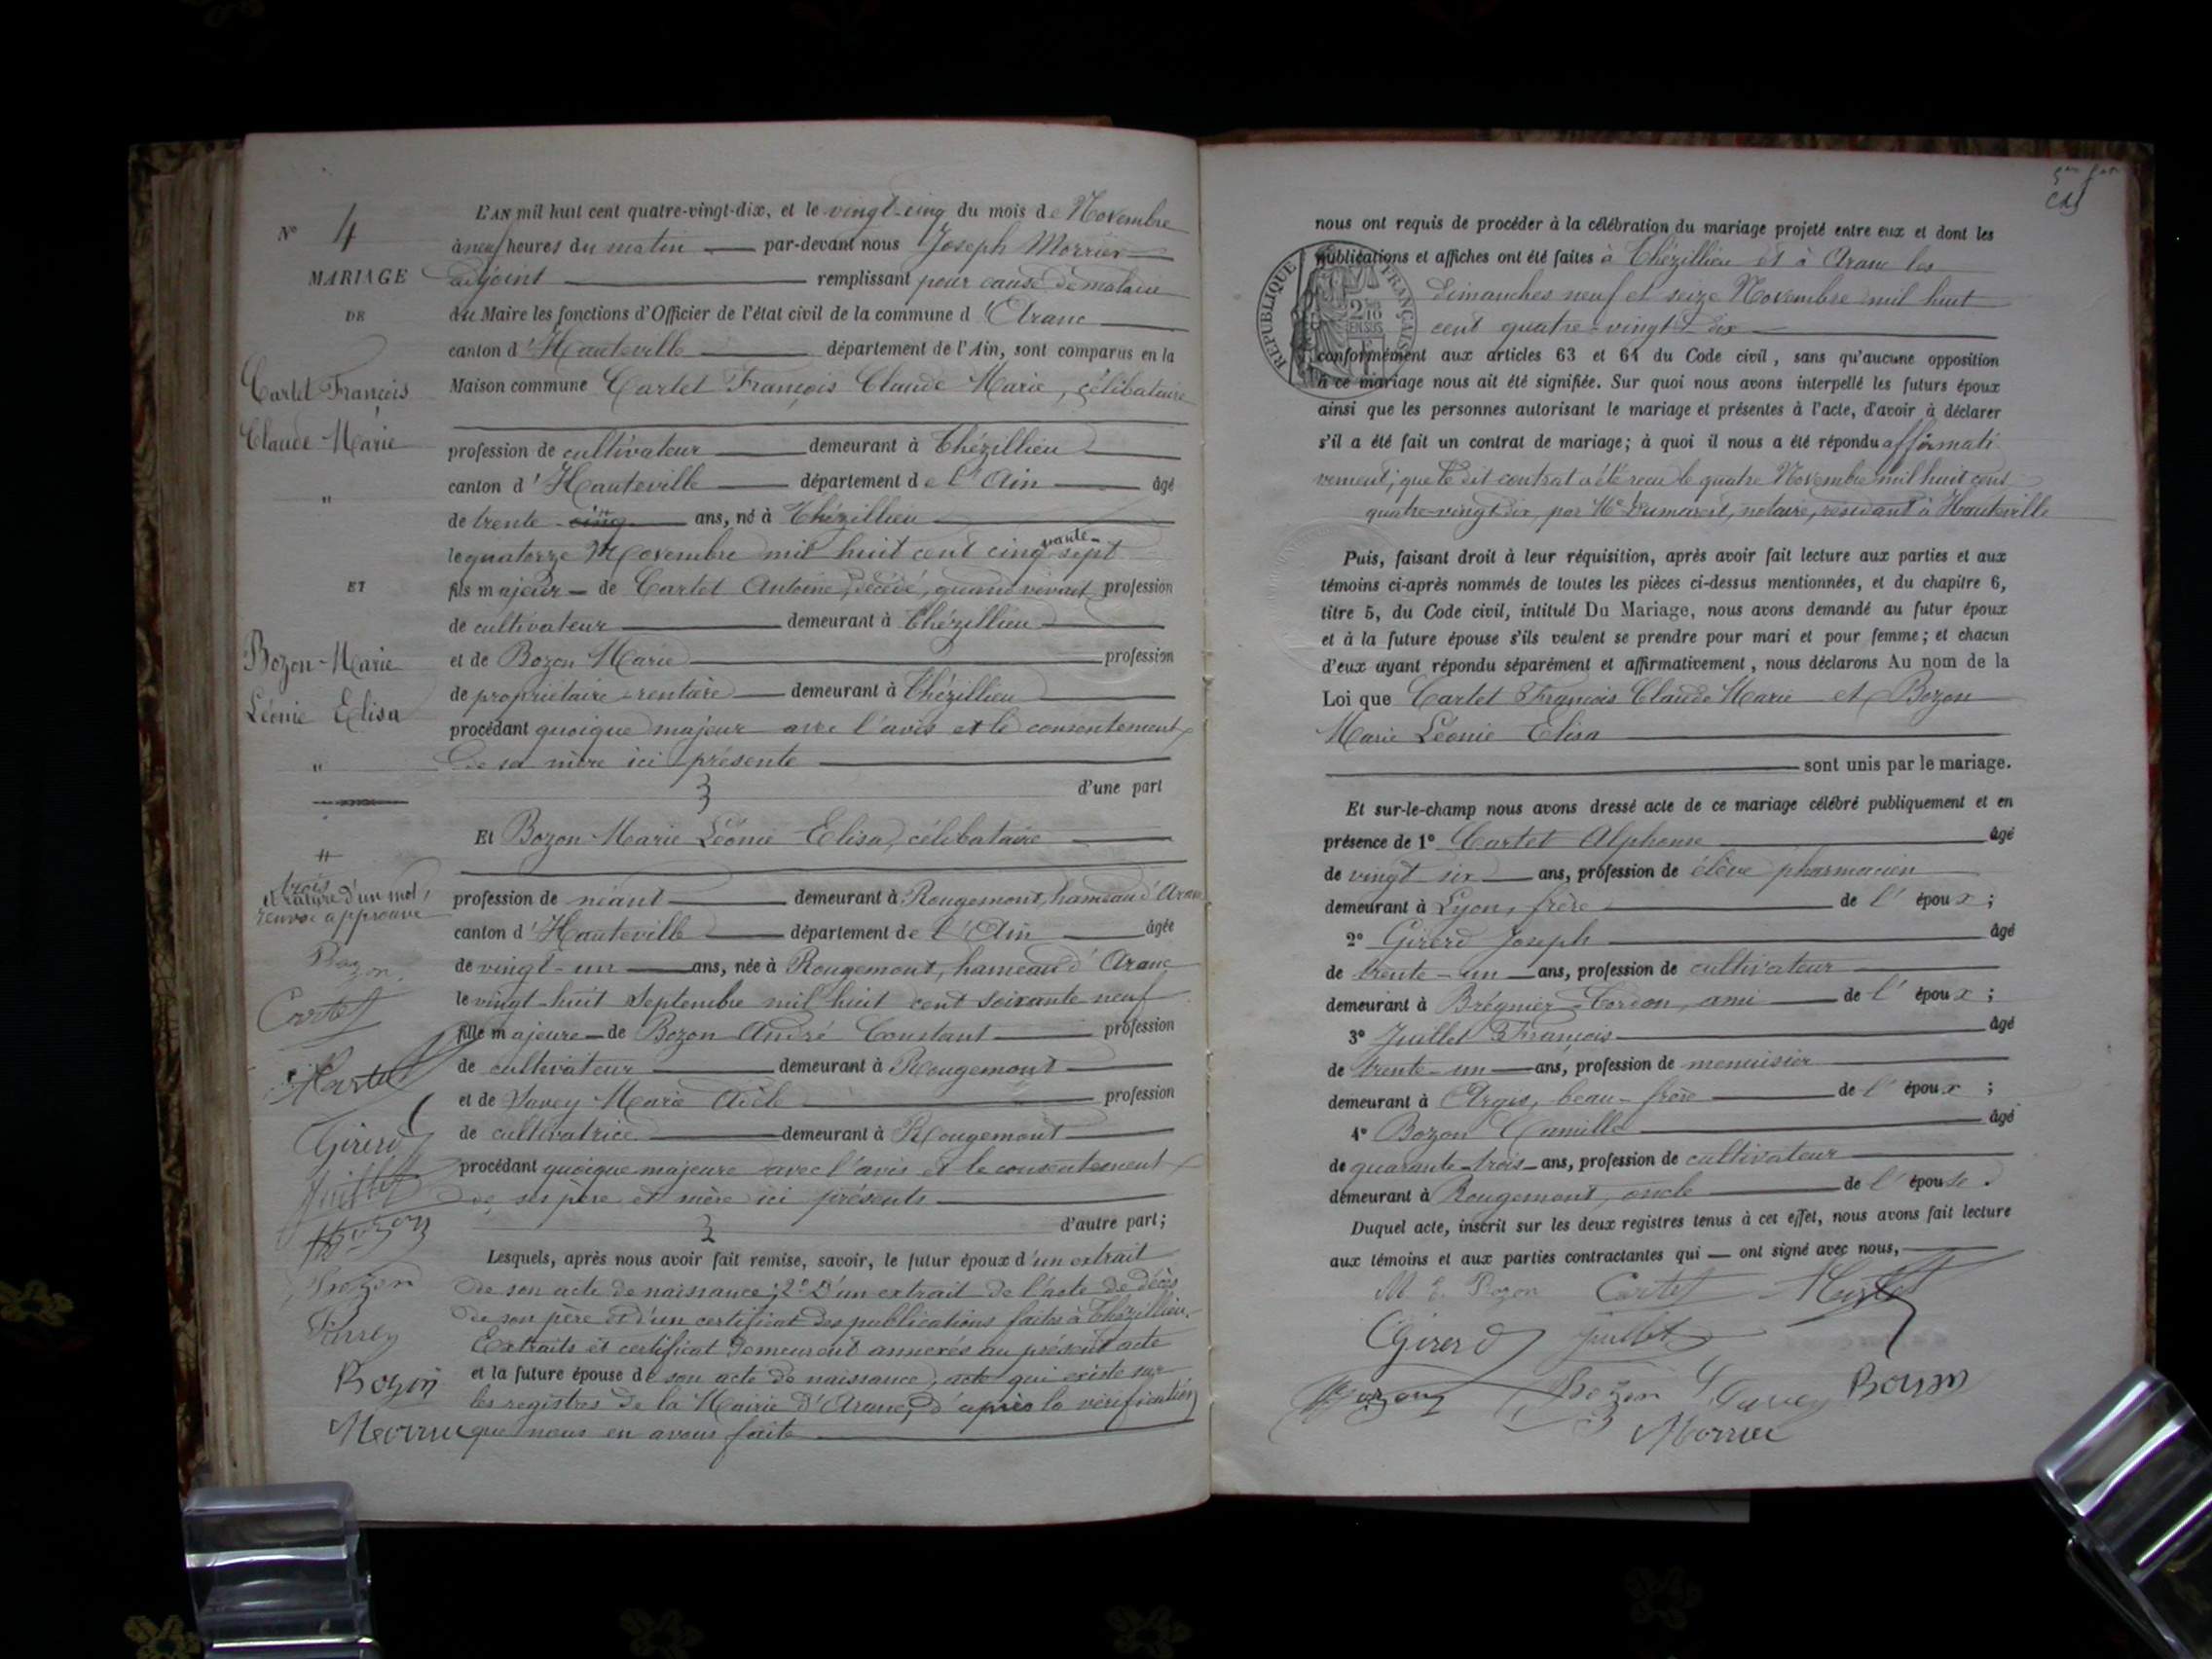 N° 4
MARIAGE
DE
Cartet François
Claude Marie
"
ET
Bozon Marie
Léonie Elisa
"
trois
et rature d'un mot,
renvoi approuvé
Bozon
Cartet
Girerd
Juillet
Bozon
Bozon
Bozon
L'AN mil huit cent quatre-vingt-dix, et le vingt-cinq du mois de Novembre
à neuf heures du matin par-devant nous Joseph Morrier
adjoint remplissant pour cause de maladie
du Maire les fonctions d'Officier de l'état civil de la commune d'Aranc
canton d'Hauteville département de l'Ain, sont comparus en la
Maison commune Cartet François Claude Marie, célibataire
profession de cultivateur demeurant à Thézillieu
canton d'Hauteville département de l'Ain âgé
de trente cinq ans, né à Thézillieu
le quatorze Novembre mil huit cent cinquante-sept
fils majeur de Cartet Antoine, décédé, quand vivait profession
de cultivateur demeurant à Thézillieu
et de Bozon Marie profession
de propriétaire rentière demeurant à Thézillieu
procédant quoique majeur avec l'avis et le consentement
de sa mère ici présente
d'une part
Et Bozon Marie Léonie Elisa, célibataire
profession de néant demeurant à Rougemont, hameau d'Aranc
canton d'Hauteville département de l'Ain âgée
de vingt-un ans, née à Rougemont, hameau d'Aranc
le vingt-huit Septembre mil huit cent soixante neuf
fille majeure de Bozon André Constant profession
de cultivateur demeurant à Rougemont
et de Savey Marie Adèle profession
de cultivatrice demeurant à Rougemont
procédant quoique majeure avec l'avis et le consentement
de ses père et mère ici présents
d'autre part;
Lesquels, après nous avoir fait remise, savoir, le futur époux d'un extrait
de son acte de naissance; 2° D'un extrait de l'acte de décès
de son père et d'un certificat des publications faites à Thézillieu.
Extraits et certificat demeurent annexés au présent acte
et la future épouse de son acte de naissance, acte qui existe sur
les registres de la Mairie d'Aranc, d'après la vérification
que nous en avons faite
nous ont requis de procéder à la célébration du mariage projeté entre eux et dont les
publications et affiches ont été faites à Thézillieu et à Aranc les
dimanches neuf et seize Novembre mil huit
cent quatre-vingt dix
conformément aux articles 63 et 64 du Code civil, sans qu'aucune opposition
à ce mariage nous ait été signifiée. Sur quoi nous avons interpellé les futurs époux
ainsi que les personnes autorisant le mariage et présentes à l'acte, d'avoir à déclarer
s'il a été fait un contrat de mariage; à quoi il nous a été répondu affirmati
vement; que le dit contrat a été reçu le quatre Novembre mil huit cent
quatre-vingt dix, par Me Dumarest, notaire, résidant à Hauteville
RÉPUBLIQUE FRANÇAISE
Puis, faisant droit à leur réquisition, après avoir fait lecture aux parties et aux
témoins ci-après nommés de toutes les pièces ci-dessus mentionnées, et du chapitre 6,
titre 5, du Code civil, intitulé Du Mariage, nous avons demandé au futur époux
et à la future épouse s'ils veulent se prendre pour mari et pour femme; et chacun
d'eux ayant répondu séparément et affirmativement, nous déclarons Au nom de la
Loi que Cartet François Claude Marie et Bozon
Marie Léonie Elisa
sont unis par le mariage.
Et sur-le-champ nous avons dressé acte de ce mariage célébré publiquement et en
présence de 1° Cartet Alphonse âgé
de vingt six ans, profession de élève pharmacien
demeurant à Lyon, frère de l'époux;
2° Girerd Joseph âgé
de trente-un ans, profession de cultivateur
demeurant à Brégnier-Cordon, ami de l'époux;
3° Juillet François âgé
de trente-un ans, profession de menuisier
demeurant à Argis, beau-frère de l'époux;
4° Bozon Camille âgé
de quarante-trois ans, profession de cultivateur
demeurant à Rougemont, oncle de l'épouse.
Duquel acte, inscrit sur les deux registres tenus à cet effet, nous avons fait lecture
aux témoins et aux parties contractantes qui ont signé avec nous,
M. E. Bozon Cartet
Girerd Juillet
Bozon Bozon Savey Bozon